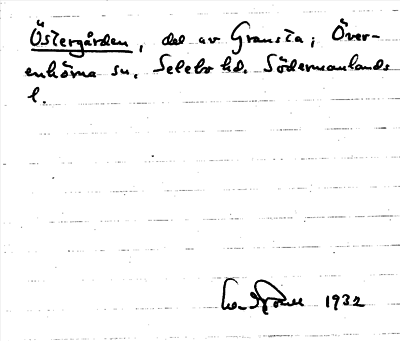 Östergården, del av Gransta, Över-
enhörna sn. Selebo hd. Södermanlands
l.
1932